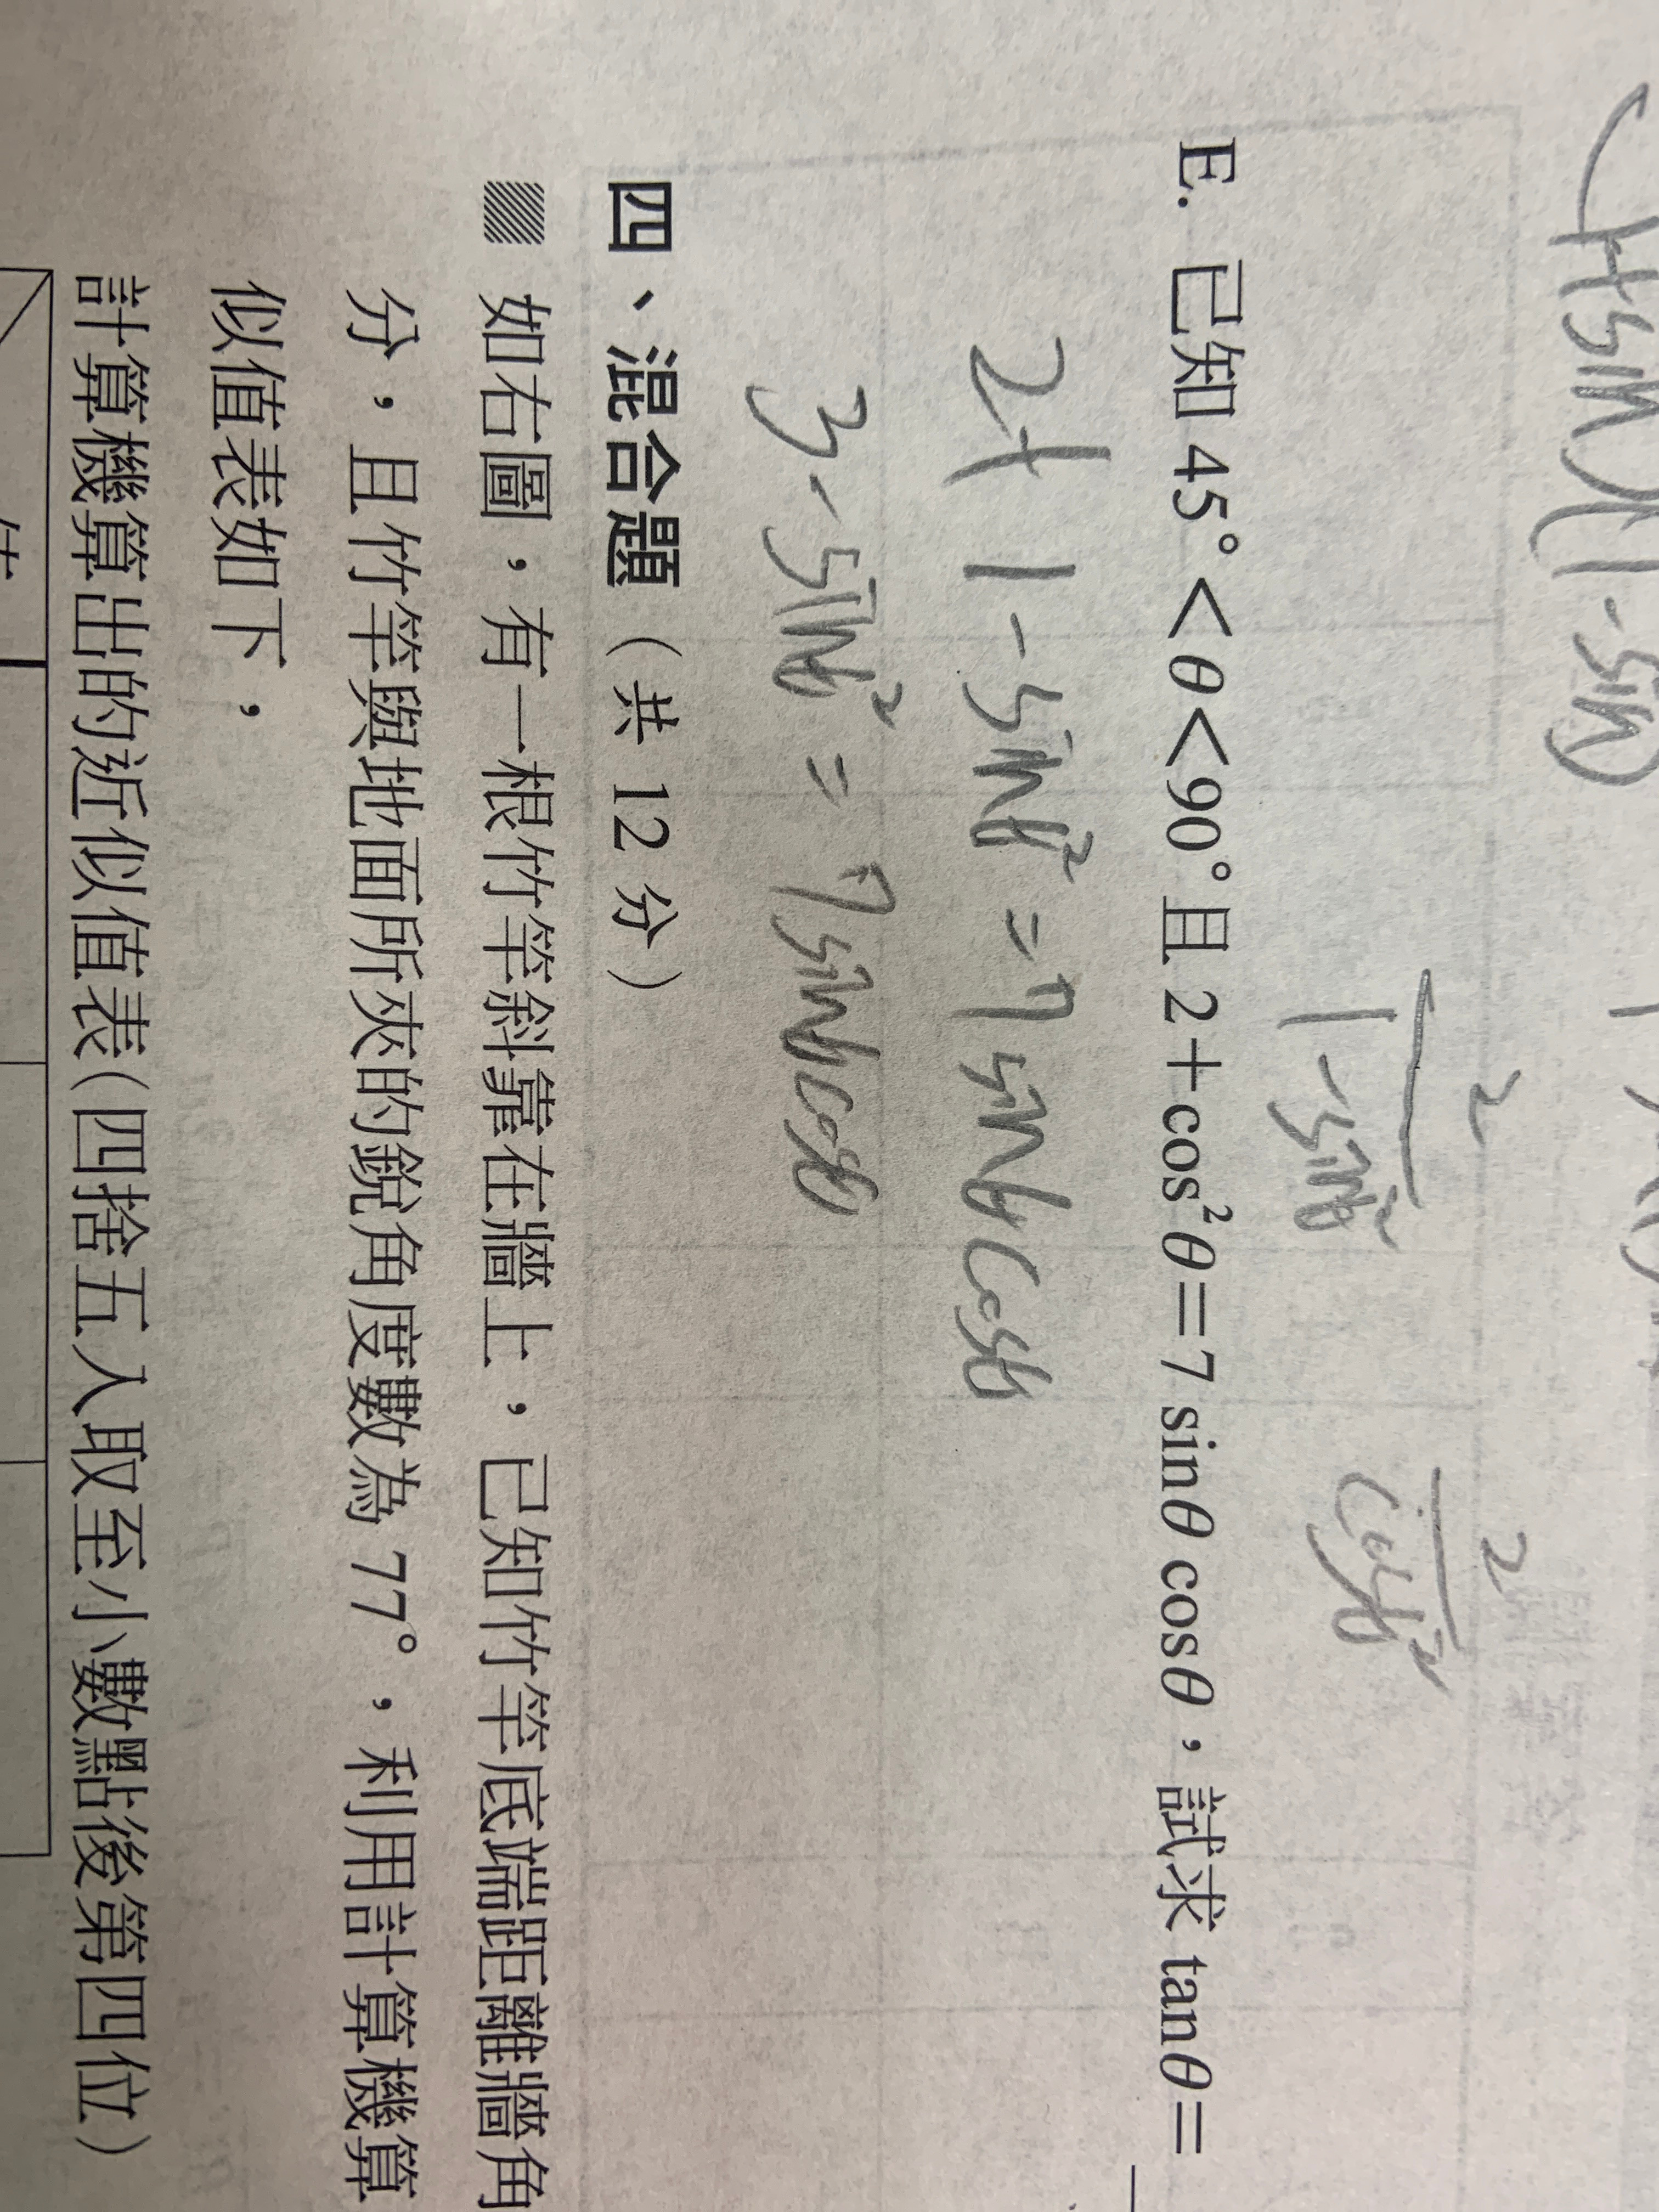 (1+sin)(1-sin)
2
1-sinθ²
2
cosθ²
E. 已知 45°<θ<90°且 2+cos²θ=7 sinθ cosθ，試求 tanθ=
2+1-sinθ²=7sinθcosθ
3-sinθ²=7sinθcosθ
四、混合題（共 12 分）
如右圖，有一根竹竿斜靠在牆上，已知竹竿底端距離牆角
分，且竹竿與地面所夾的銳角度數為 77°，利用計算機算
似值表如下，
計算機算出的近似值表(四捨五入取至小數點後第四位)